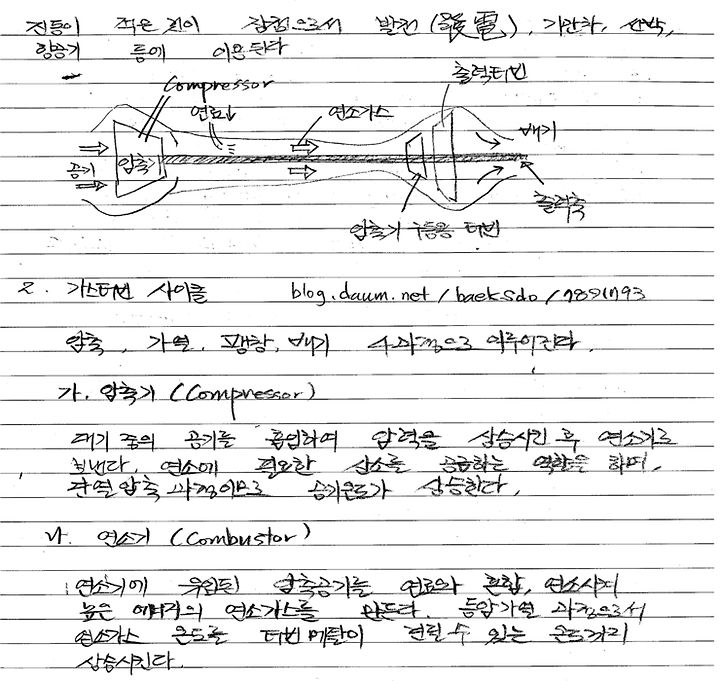 진동이 적은 것이 장점으로서 발전(發電), 기관차, 선박,
항공기 등에 이용된다
Compressor
출력터빈
연료↓
연소가스
배기
공기
압축기
출력축
압축기 구동용 터빈
2. 가스터빈 사이클 blog.daum.net/baeksdo/7891793
압축, 가열, 팽창, 배기 4과정으로 이루어진다.
가. 압축기 (Compressor)
대기 중의 공기를 흡입하여 압력을 상승시킨 후 연소기로
보낸다. 연소에 필요한 산소를 공급하는 역할을 하며,
단열압축 과정이므로 공기온도가 상승한다.
나. 연소기 (Combustor)
연소기에 유입된 압축공기를 연료와 혼합, 연소시켜
높은 에너지의 연소가스를 만든다. 등압가열 과정으로서
연소가스 온도를 터빈 메탈이 견딜 수 있는 온도까지
상승시킨다.